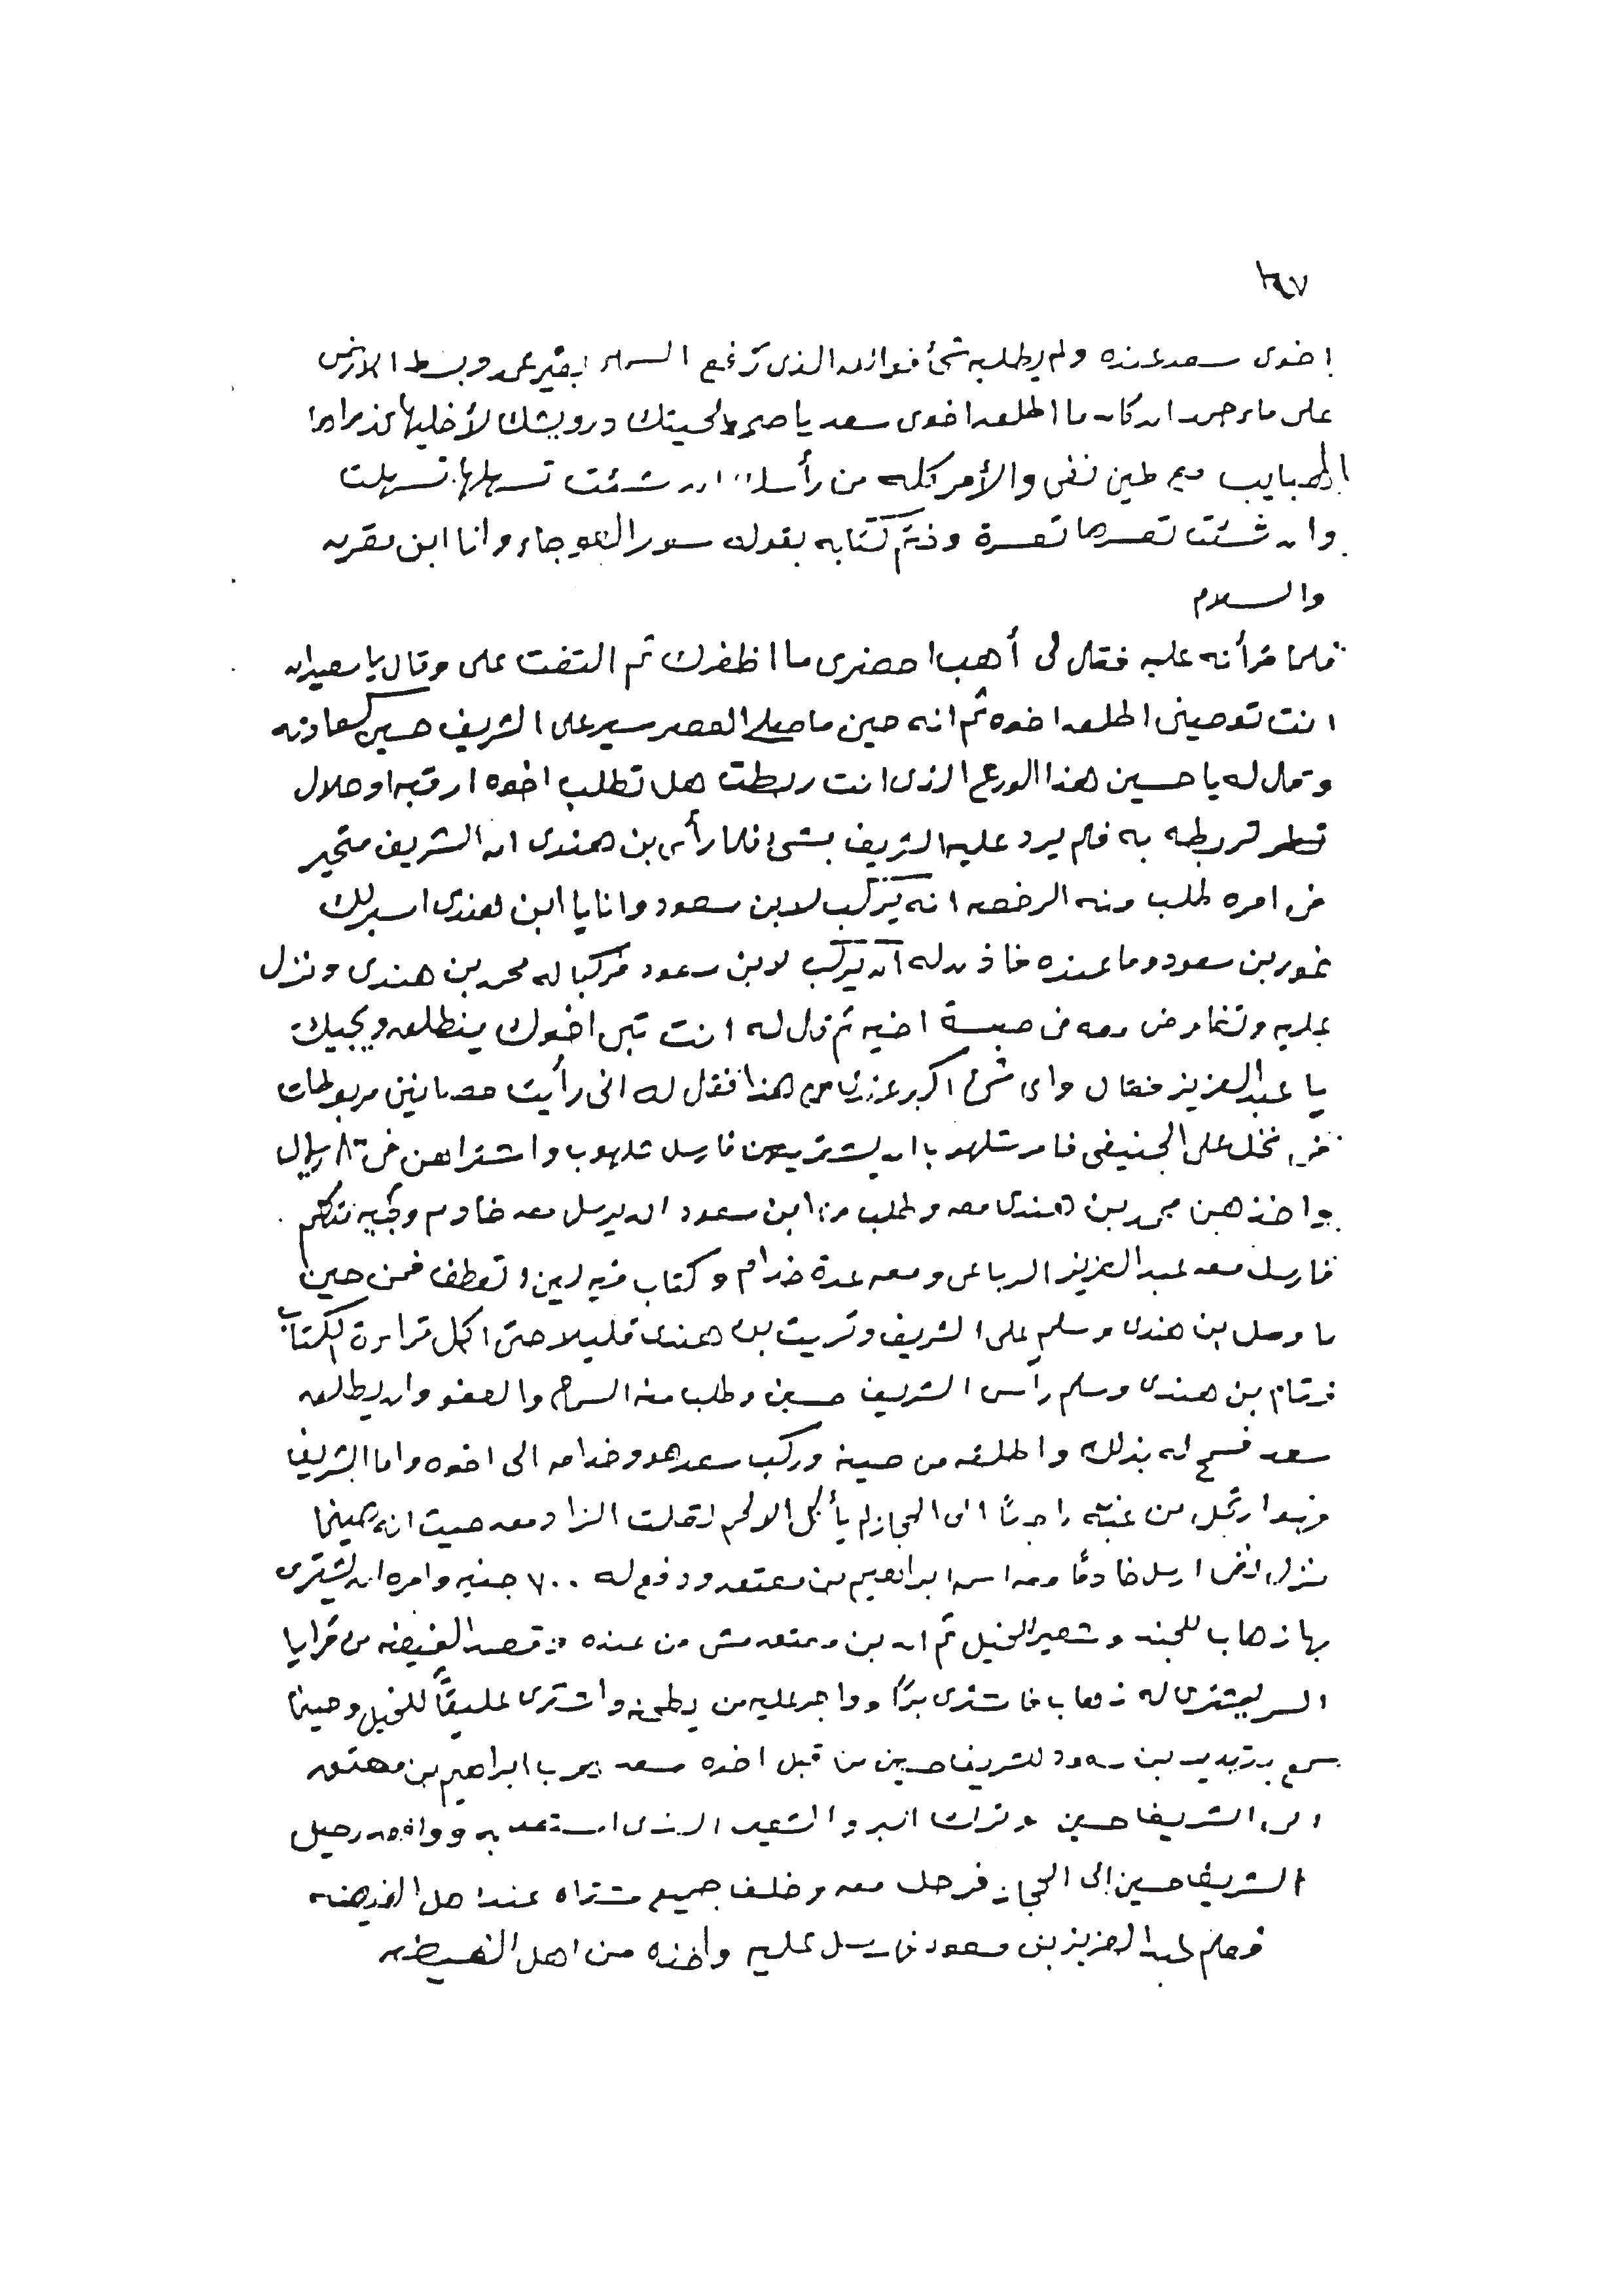 اخوى سعد عنده ولم يطلبه شئ فوالله الذى رفع السماء بغير عمد وبسط الارض
على ماء جمد ان كان ما اطلعه اخوى سعد يا صم لحيتك درويشك لأخليها
المصايب طين نفى والأمر كله من رأسك ان شئت تسهلها تسهلت
وان شئت تعسرها تعسرة وختم كتابه بقوله سور العوجاء وانا ابن مقرن
والسلام
فلما قرأته عليه فقال لى أهب احضرى ما اظفرك ثم التفت على وقال يا سعيدان
انت توصينى اطلعه اخوه ثم انه حين ما صلى العصر سير على الشريف حسين كعادته
وقال له يا حسين هذا الورع الذى انت ربطت هل تطلب اخوه ارقبه او حلال
تربطه به فلم يرد عليه الشريف بشئ فلما رأى بن هندى ان الشريف متحير
فى امره طلب منه الرخصه انه يركب لابن سعود وانا يا ابن هندى اسبر لك
غور بن سعود وما عنده فاذن له ان يركب لابن سعود فركب له محمد بن هندى ونزل
عليه وتفاوض معه فى حبسة اخيه ثم قال له انت تبى اخوك ينطلعه ويجيك
يا عبد العزيز فقال واى شئ اكبر عندى من هذا فقال له انى رأيت حصانين مربوطات
فى نخل على الجنيفى فامر شلهوب بان يشتريهن فارسل شلهوب واشتراهن فى ٨٠٠ ريال
واخذهن محمد بن هندى معه وطلب من ابن سعود ان يرسل معه خادم وجيه تكلم
فارسل معه عبد العزيز الرباعى ومعه عدة خدام وكتاب فيه لين وتعطف فمن حين
ما وصل بن هندى وسلم على الشريف وتريث بن هندى قليلا حتى اكمل قراءة الكتاب
فقام بن هندى وسلم رأس الشريف حسين وطلب منه السماح والعفو وان يطالعه
سعد فسمح له بذلك واطلقه من حينه وركب سعد هو وخدامه الى اخوه واما الشريف
فهوا رتحل من راجعًا الى الحجاز لم يأكل الا لحم لقلت الزاد معه حيث انه حينما
نزل نفى ارسل خادمًا معه اسمه ابراهيم بن معتمد ودفع له ٧٠٠ جنيه وامره ان يشترى
بها ذهاب للجند وشعير للخيل ثم ان بن معتمد مشى من عنده وقصد الفيضه من قرايا
السر ليشترى له ذهاب فاشترى برًا وواجر عليه من يطحنه واشترى عليقًا للخيل وحينما
سمع بتهديد بن سعود للشريف حسين من قبل اخوه سعد هرب ابراهيم بن معتمد
الى الشريف حسين وترك البر والشعير الذى استعد به ووافق رحيل
الشريف حسين الى الحجاز فرحل معه وخلف جميع مشتراه عند اهل الفيضه
فعلم عبد العزيز بن سعود فارسل عليه وأخذه من اهل الفيضه